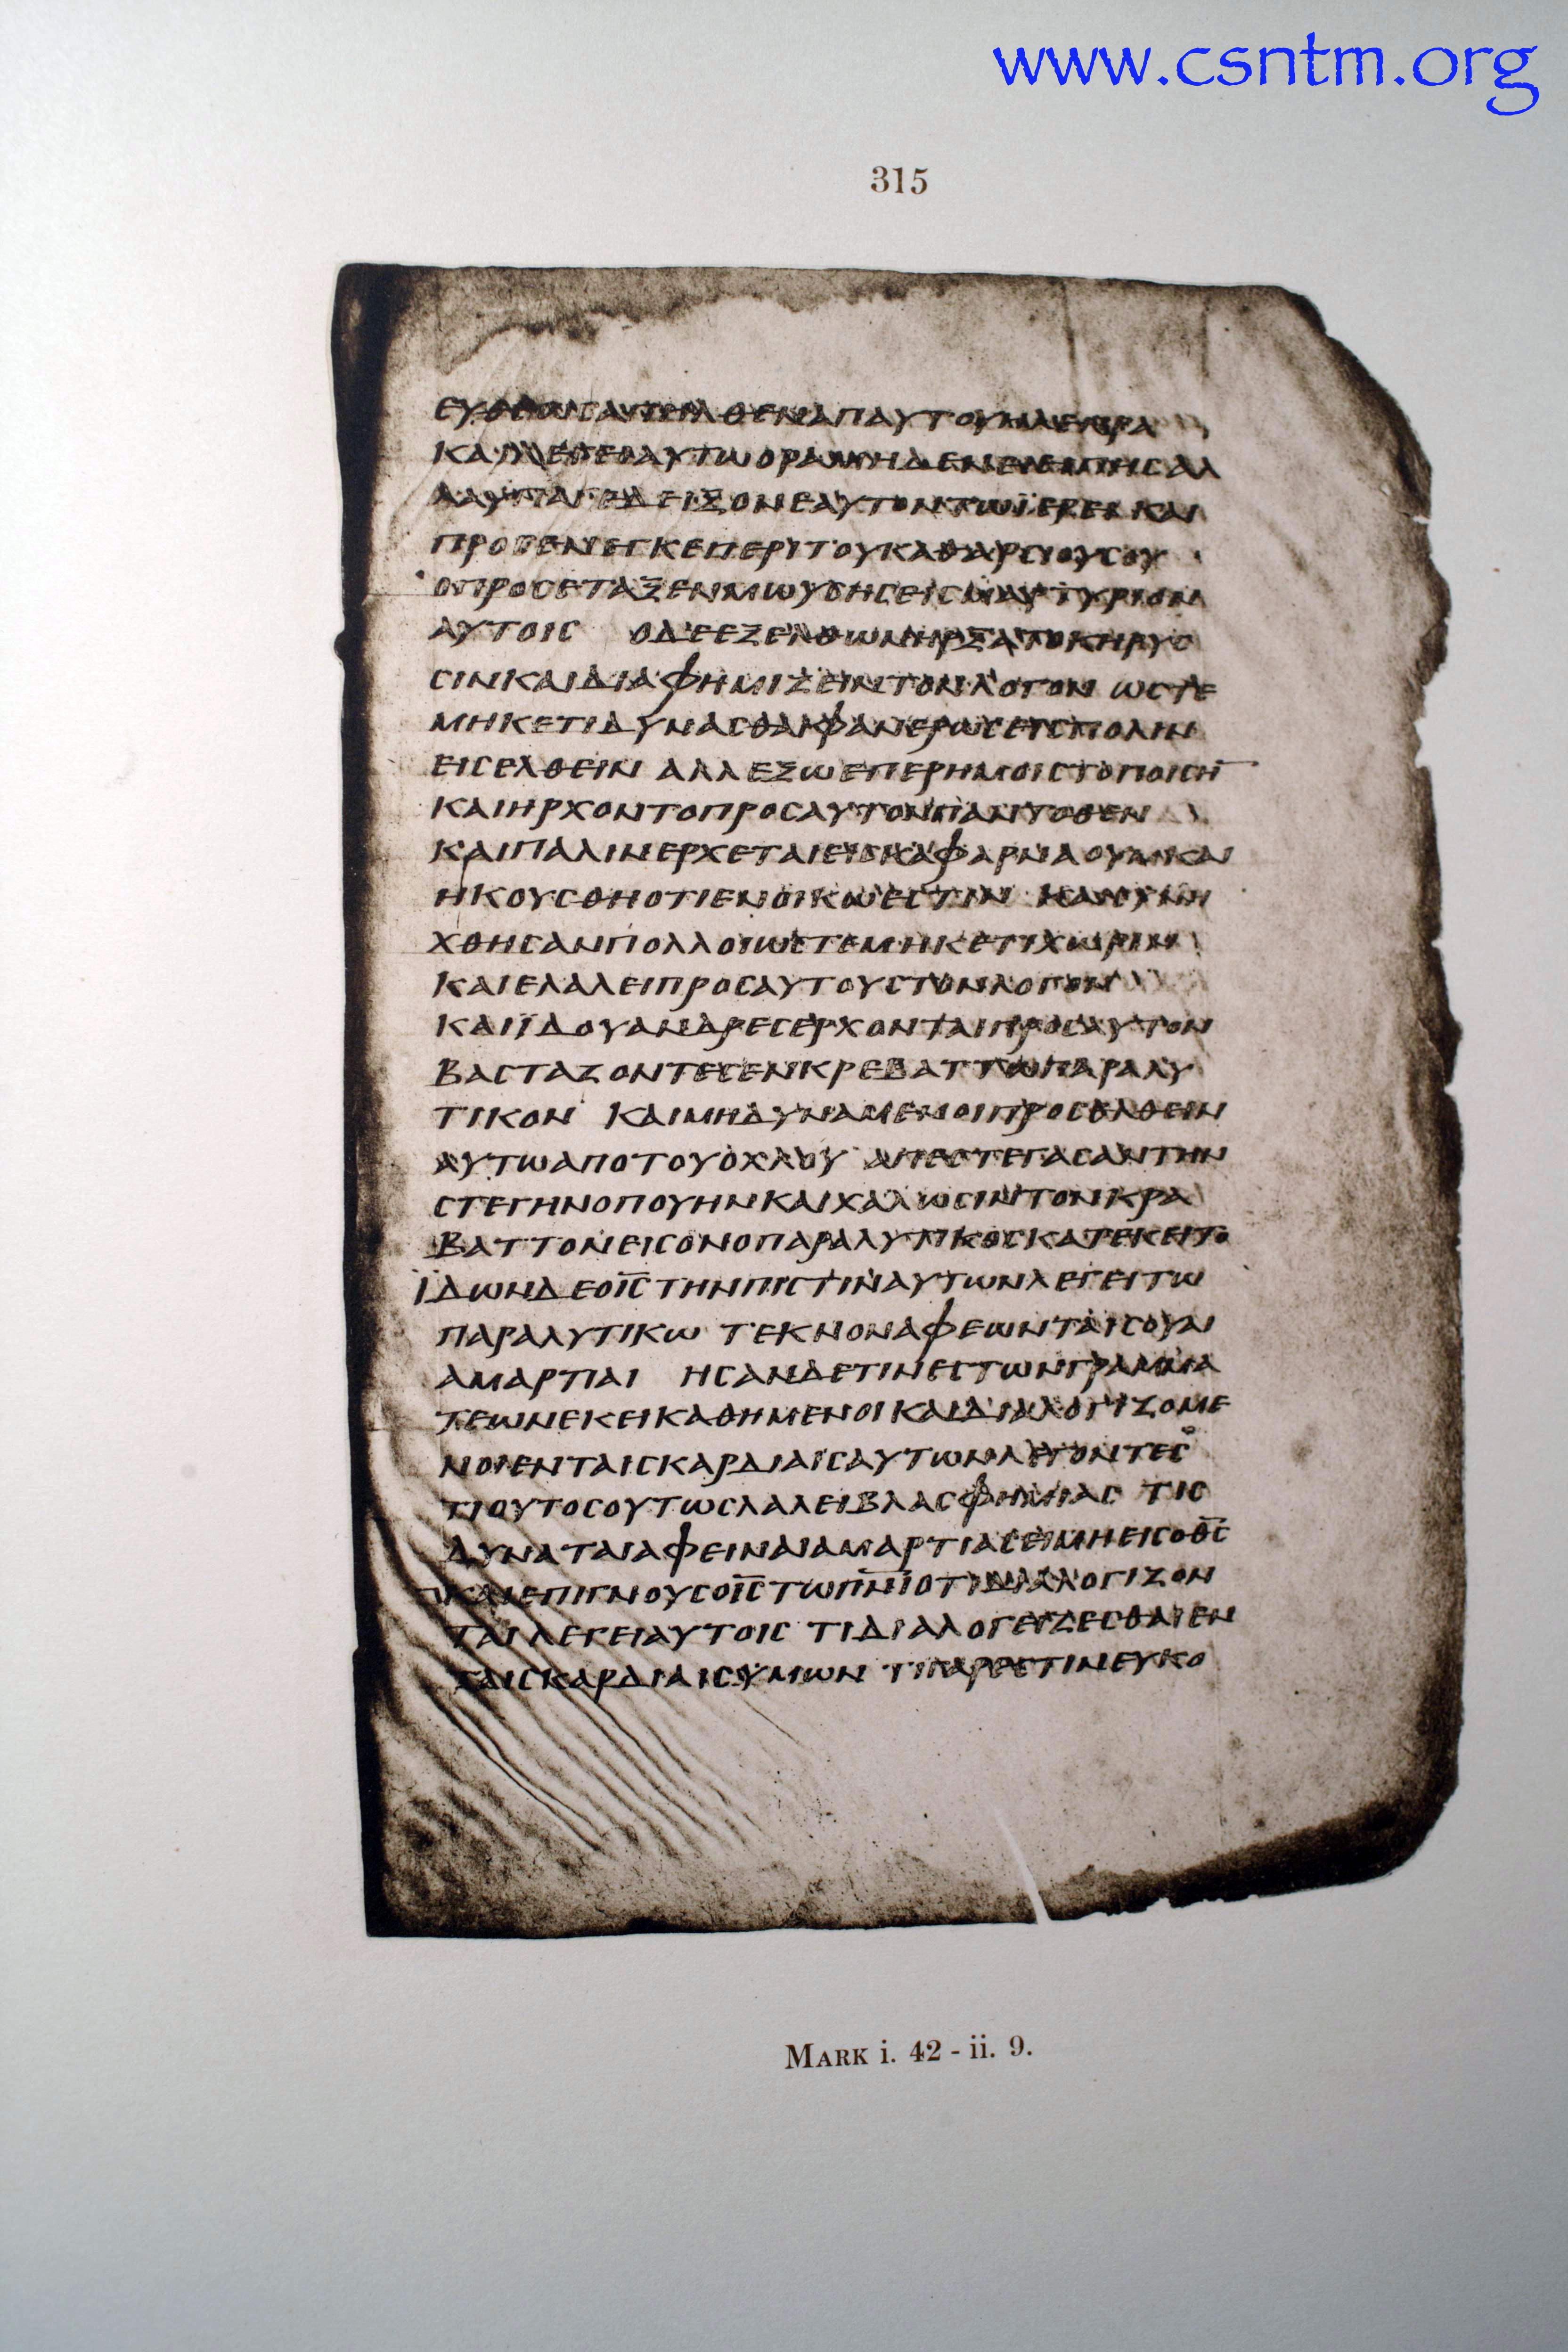 www.csntm.org
315
ΑΠΑΥΤΟΥΗΛΕΠΡΑ
ΑΥΤΩΟΡΑΜΗΔΕΝΕΙ
ΔΕΙΞΟΝΕΑΥΤΟΝΤΩΪΕΡΕΙΚΑΙ
ΠΡΟΣΕΝΕΓΚΕΠΕΡΙΤΟΥΚΑΘΑΡΙΟΥΣΟΥ
ΟΠΡΟCΕΤΑΞΕΝΜΩΥCΗCΕΙCΜΑΡΤΥΡΙΟΝ
ΑΥΤΟΙC ΟΔΕΕΞΕΛΘΩΝΗΡΞΑΤΟΚΗΡΥC
CΙΝΚΑΙΔΙΑΦΗΜΙΖΕΙΝΤΟΝΛΟΓΟΝ ΩCΤΕ
ΜΗΚΕΤΙΔΥΝΑCΘΑΙΦΑΝΕΡΩCΕΙCΠΟΛΙΝ
ΕΙCΕΛΘΕΙΝ ΑΛΛΕΞΩΕΠΕΡΗΜΟΙCΤΟΠΟΙCΗ̅
ΚΑΙΗΡΧΟΝΤΟΠΡΟCΑΥΤΟΝΠΑΝΤΟΘΕΝ
ΚΑΙΠΑΛΙΝΕΡΧΕΤΑΙΕΙCΚΑΦΑΡΝΑΟΥΜΚΑΙ
ΗΚΟΥCΘΗΟΤΙΕΝΟΙΚΩΕCΤΙΝ ΚΑΙCΥΝΗ
ΧΘΗCΑΝΠΟΛΛΟΙΩCΤΕΜΗΚΕΤΙΧΩΡΙΝ
ΚΑΙΕΛΑΛΕΙΠΡΟCΑΥΤΟΥCΤΟΝΛΟΓΟΝ
ΚΑΙΪΔΟΥΑΝΔΡΕCΕΡΧΟΝΤΑΙΠΡΟCΑΥΤΟΝ
ΒΑCΤΑΖΟΝΤΕCΕΝΚΡΕΒΑΤΤΩΠΑΡΑΛΥ
ΤΙΚΟΝ ΚΑΙΜΗΔΥΝΑΜΕΝΟΙΠΡΟCΕΛΘΕΙΝ
ΑΥΤΩΑΠΟΤΟΥΟΧΛΟΥ ΑΠΕCΤΕΓΑCΑΝΤΗΝ
CΤΕΓΗΝΟΠΟΥΗΝΚΑΙΧΑΛΩCΙΝΤΟΝΚΡΑ
ΒΑΤΤΟΝΕΙCΟΝΟΠΑΡΑΛΥΤΙΚΟCΚΑΤΕΚΕΙΤΟ
ΪΔΩΝΔΕΟΙ̅C̅ΤΗΝΠΙCΤΙΝΑΥΤΩΝΛΕΓΕΙΤΩ
ΠΑΡΑΛΥΤΙΚΩ ΤΕΚΝΟΝΑΦΕΩΝΤΑΙCΟΥΑΙ
ΑΜΑΡΤΙΑΙ ΗCΑΝΔΕΤΙΝΕCΤΩΝΓΡΑΜΜΑ
ΤΕΩΝΕΚΕΙΚΑΘΗΜΕΝΟΙΚΑΙΔΙΑΛΟΓΙΖΟΜΕ
ΝΟΙΕΝΤΑΙCΚΑΡΔΙΑΙCΑΥΤΩΝΛΕΓΟΝΤΕC
ΤΙΟΥΤΟCΟΥΤΩCΛΑΛΕΙΒΛΑCΦΗΜΙΑC ΤΙC
ΔΥΝΑΤΑΙΑΦΕΙΝΑΙΑΜΑΡΤΙΑCΕΙΜΗΕΙCΟΘ̅C̅
ΚΑΙΕΠΙΓΝΟΥCΟΙ̅C̅ΤΩΠ̅Ν̅Ι̅ΟΤΙΔΙΑΛΟΓΙΖΟΝ
ΤΑΙΛΕΓΕΙΑΥΤΟΙC ΤΙΔΙΑΛΟΓΕΙΖΕCΘΑΙΕΝ
ΤΑΙCΚΑΡΔΙΑΙCΥΜΩΝ ΤΙΓΑΡΕCΤΙΝΕΥΚΟ
MARK i. 42 - ii. 9.